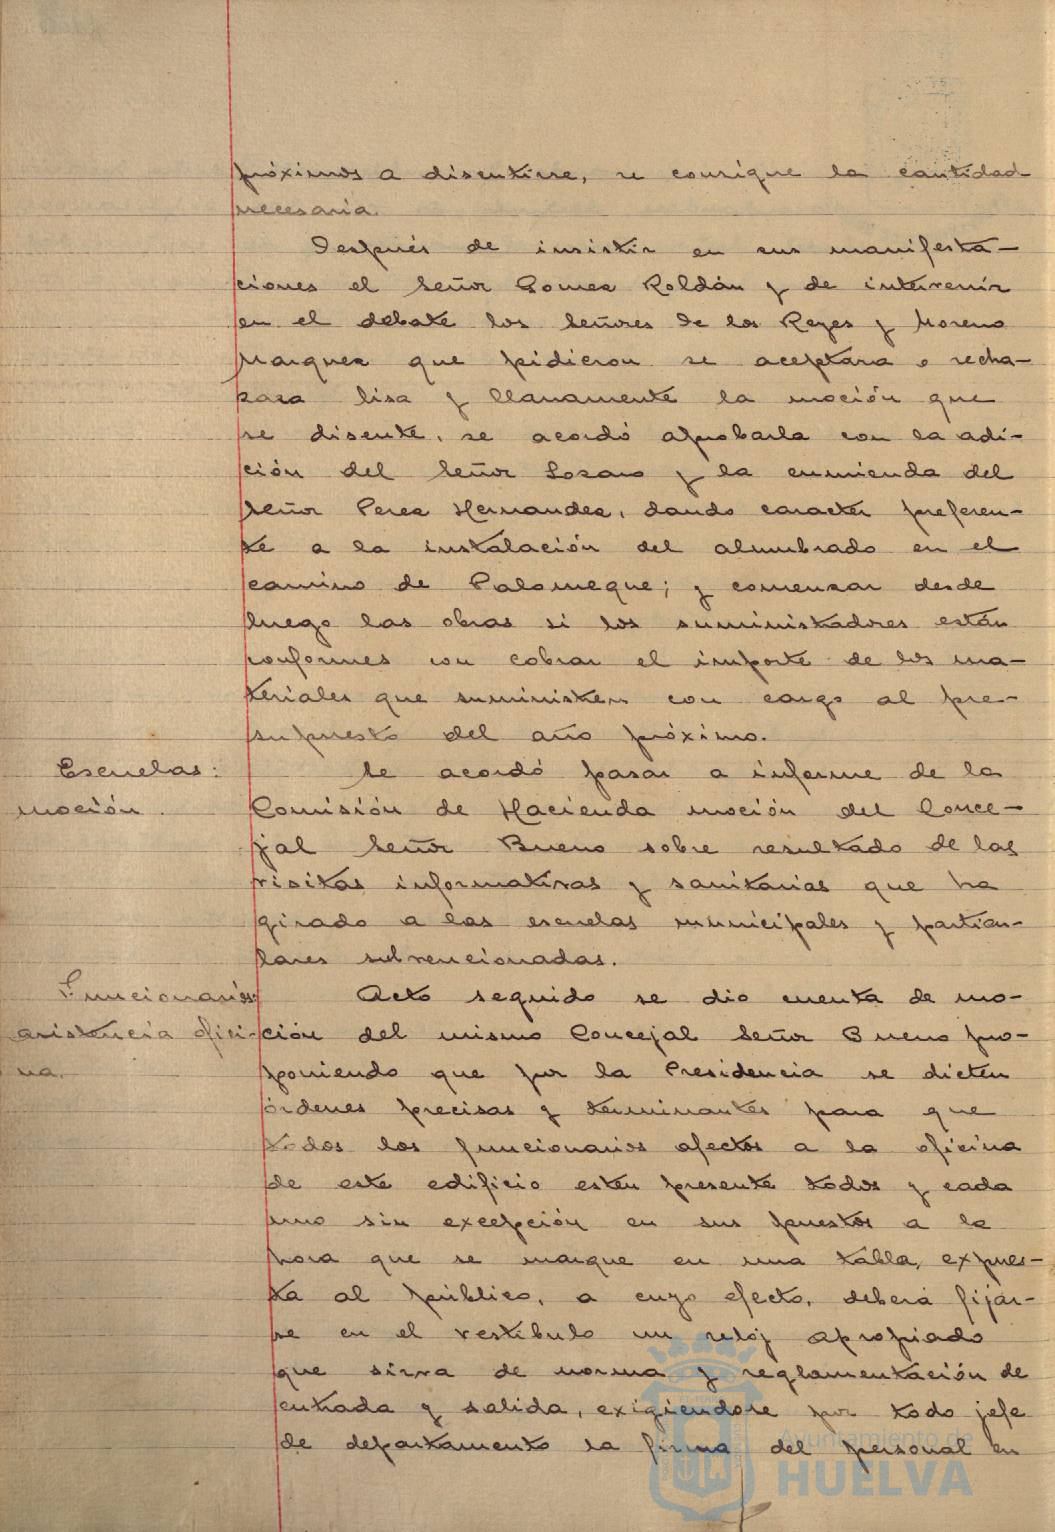 próximos a discutirse, se consigne la cantidad
necesaria.
Después de insistir en sus manifesta-
ciones el Señor Gomez Roldán y de intervenir
en el debate los Señores de los Reyes y Moreno
Marquez que pidieron se aceptara o recha-
zara lisa y llanamente la moción que
se discute, se acordó aprobarla con la adi-
ción del Señor Lozano y la enmienda del
Señor Perez Hernandez, dando caracter preferen-
te a la instalación del alumbrado en el
camino de Palomeque; y comenzar desde
luego las obras si los suministradores están
conformes con cobrar el importe de los ma-
teriales que suministren con cargo al pre-
supuesto del año próximo.
Escuelas:
moción.
Se acordó pasar a informe de la
Comisión de Hacienda moción del Conce-
jal Señor Bueno sobre resultado de las
visitas informativas y sanitarias que ha
girado a las escuelas municipales y particu-
lares subvencionadas.
Funcionarios:
asistencia ofici-
na.
Acto seguido se dio cuenta de mo-
ción del mismo Concejal Señor Bueno pro-
poniendo que por la Presidencia se dicten
órdenes precisas y terminantes para que
todos los funcionarios afectos a la oficina
de este edificio esten presente todos y cada
uno sin excepción en sus puestos a la
hora que se marque en una tabla, expues-
ta al público, a cuyo efecto, deberá fijar-
se en el vestíbulo un reloj apropiado
que sirva de norma y reglamentación de
entrada y salida, exigiendose por todo jefe
de departamento la firma del personal en
Ayuntamiento de
HUELVA